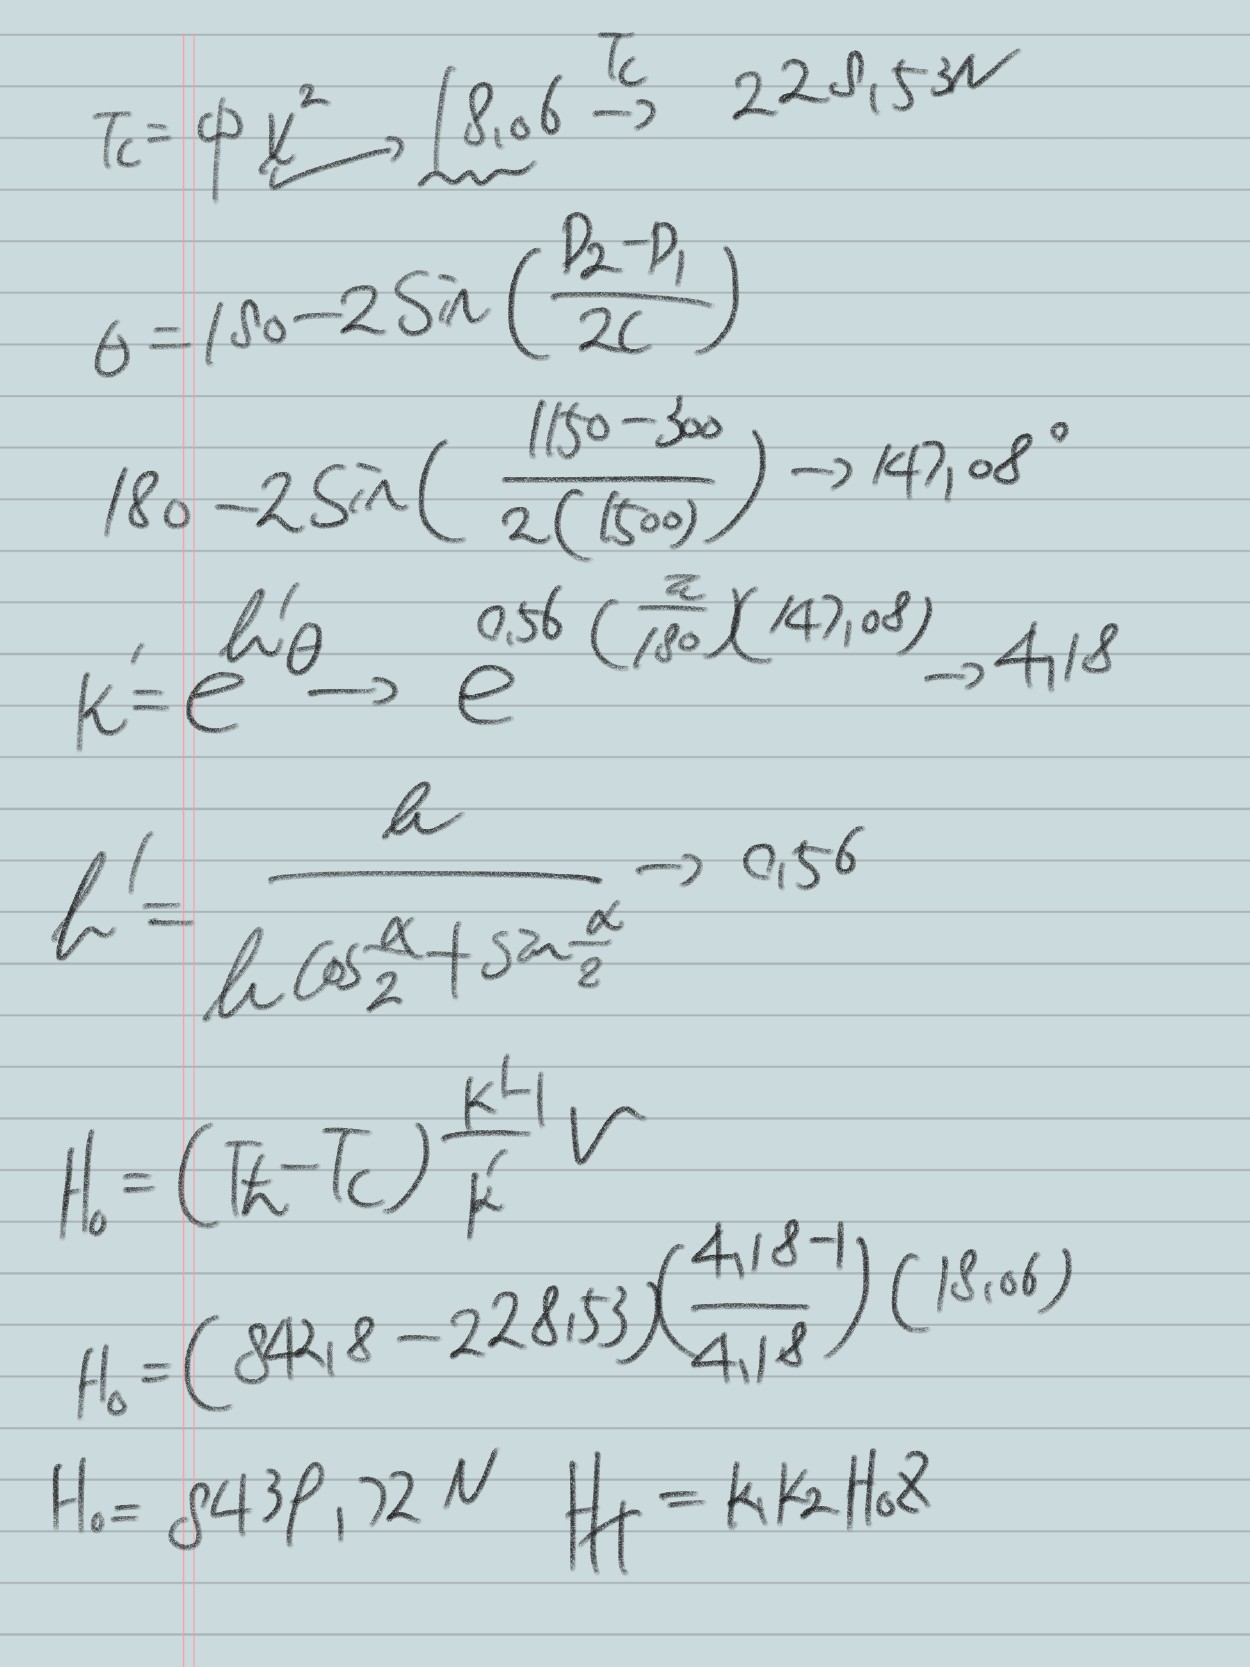 Tc = φ V² → 18,06 Tc → 228,53N
θ = 180 - 2 Sin ( (D₂ - D₁) / 2C )
180 - 2 Sin ( (1150 - 300) / 2(1500) ) → 147,08°
k' = e^(h'θ) → e^(0,56 (π/180)(147,08)) → 4,18
h' = h / (h Cos α/2 + Sin α/2) → 0,56
H₀ = (Th - Tc) (k' - 1)/k' V
H₀ = (842,8 - 228,53) ((4,18 - 1)/4,18) (18,06)
H₀ = 8439,72 N HT = k₁ k₂ H₀ Z